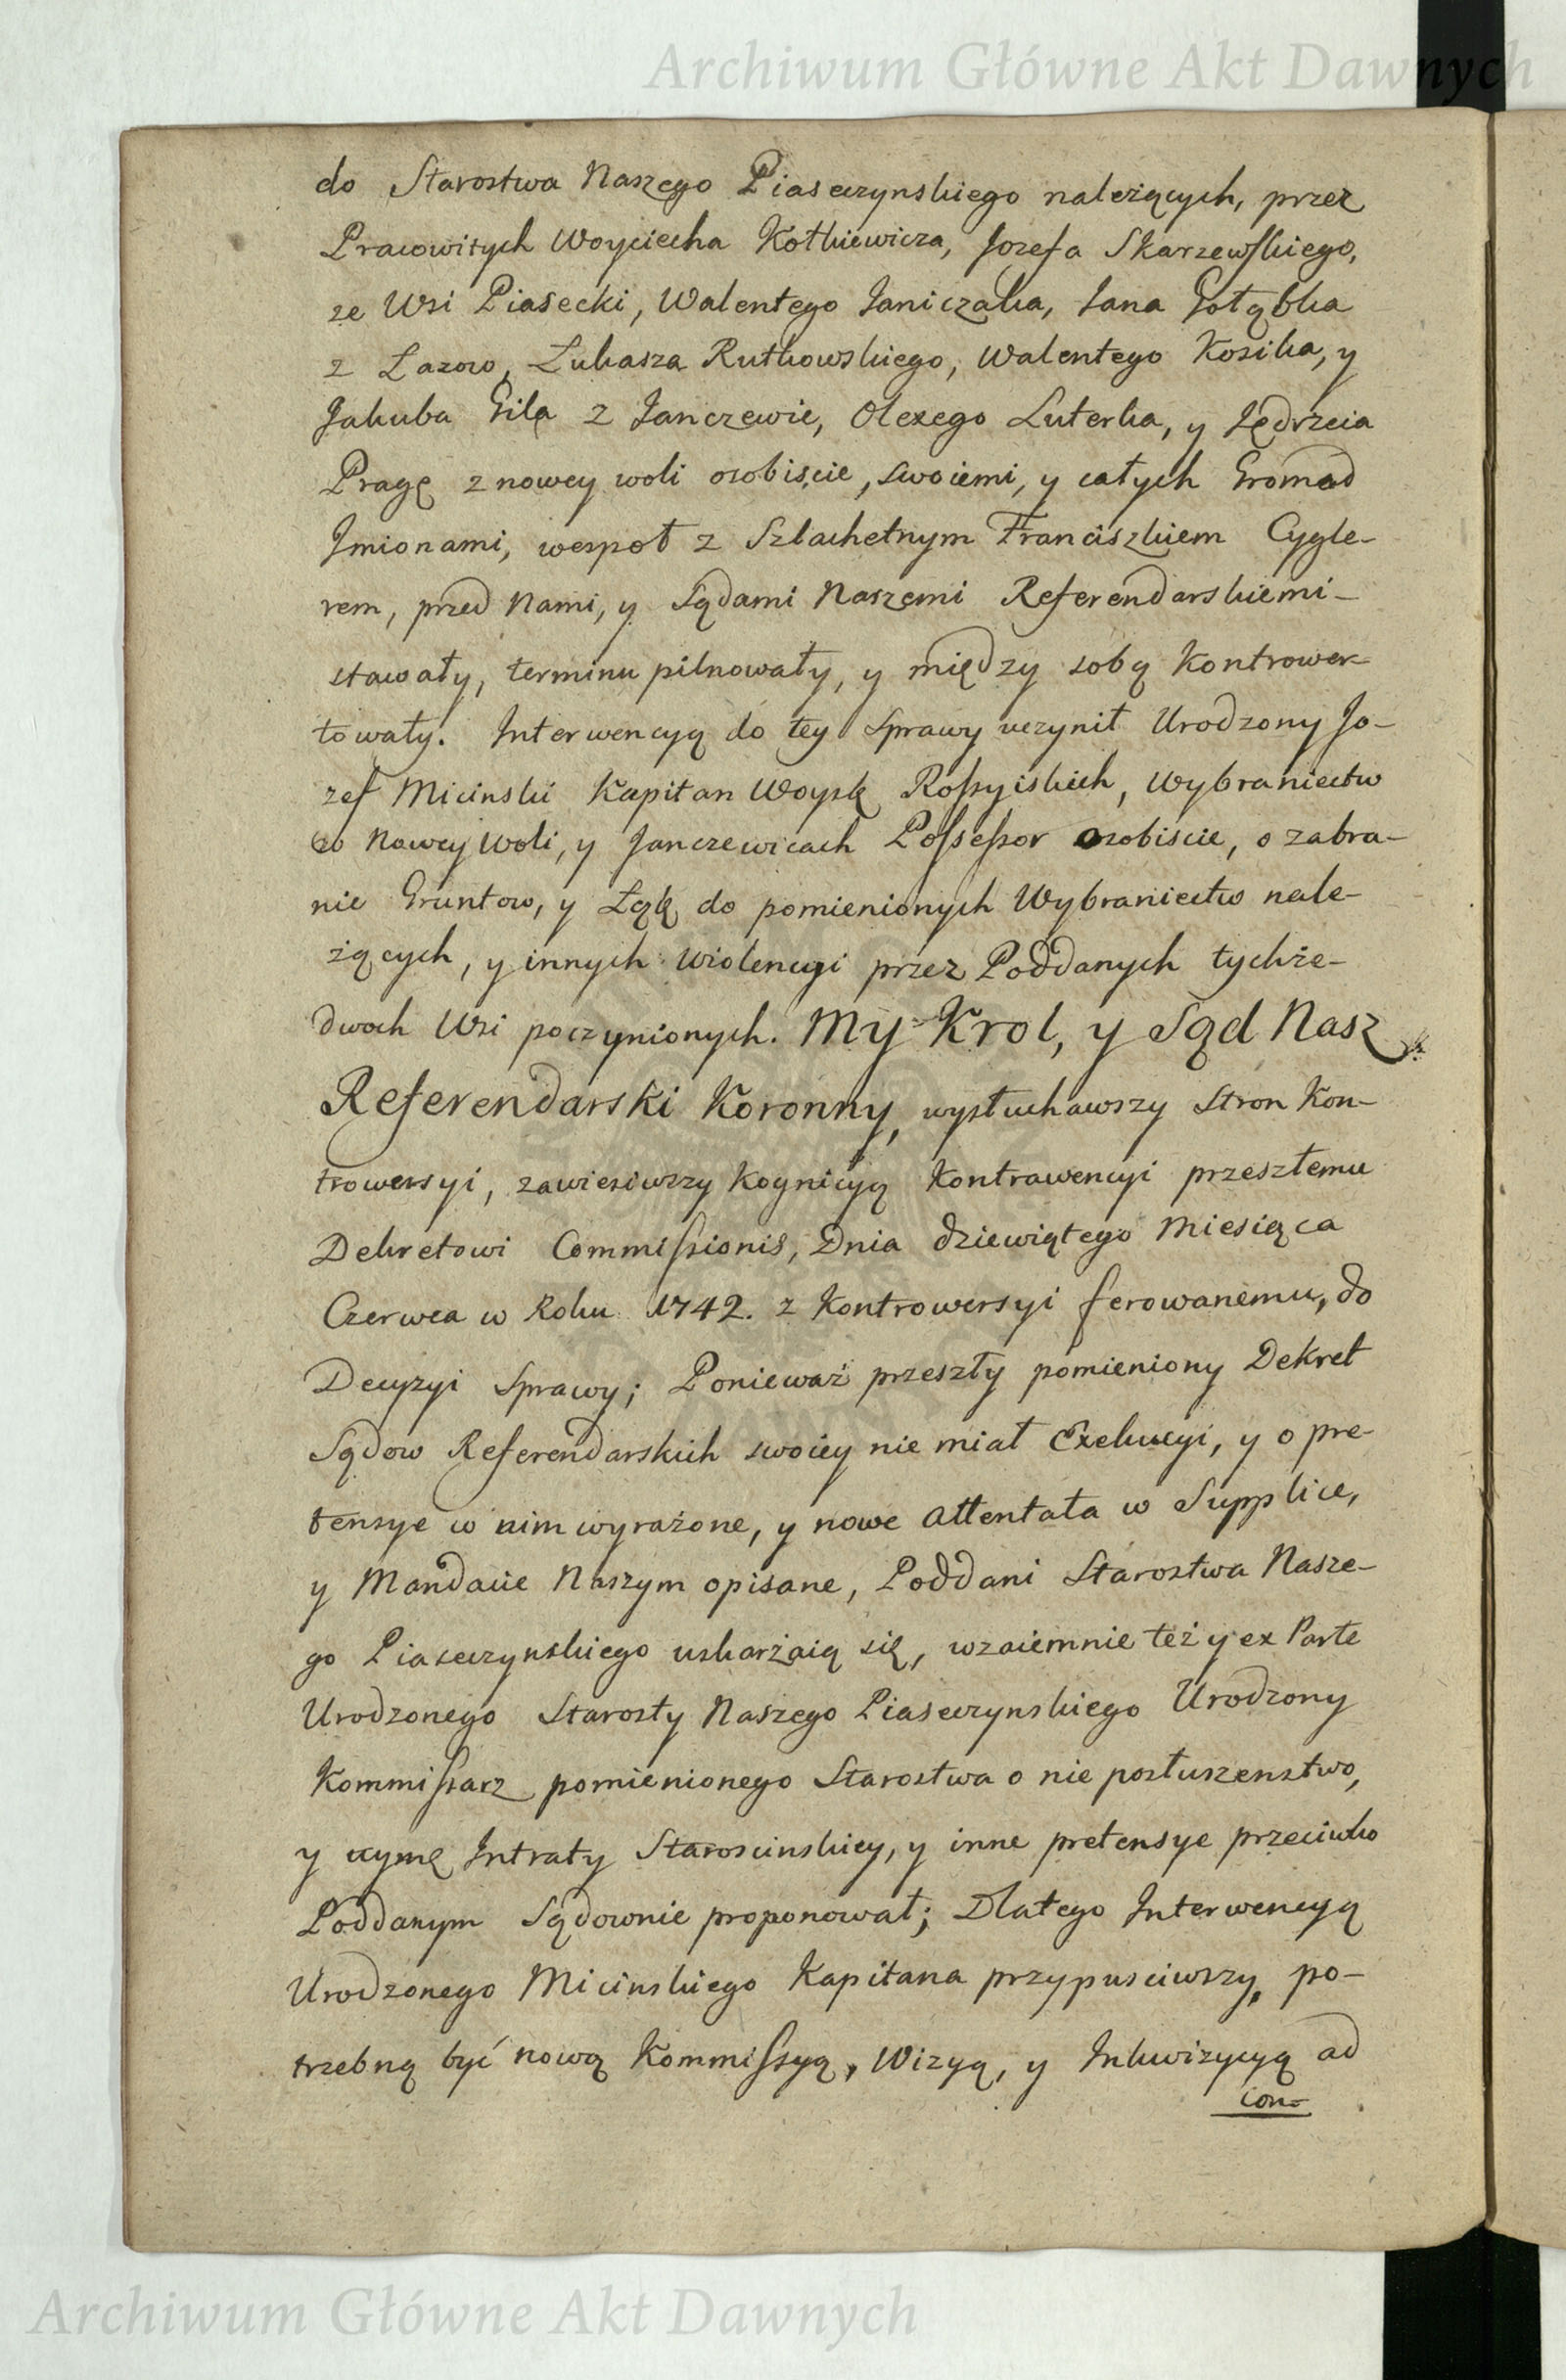 Archiwum Główne Akt Dawnych
do Starostwa Naszego Piaseczynskiego należących, przez
Pracowitych Woyciecha Kotkiewicza, Jozefa Skarzewskiego,
ze Wsi Piasecki, Walentego Janiczaka, Jana Gołąbka
z Lazow, Łukasza Rutkowskiego, Walentego Kosika, y
Jakuba Gila z Janczewic, Olexego Luterka, y Jędrzeia
Pragę z nowey woli osobiście, swoiemi, y całych Gromad
Jmionami, wespoł z Szlachetnym Franciszkiem Cygle-
rem, przed Nami, y Sądami Naszemi Referendarskiemi-
stawały, terminu pilnowały, y między sobą Kontrower-
towały. Interwencyą do tey Sprawy uczynił Urodzony Jo-
zef Micinski Kapitan Woysk Rossyiskich, Wybraniectw
w Nowey Woli, y Janczewicach Possessor osobiscie, o zabra-
nie Gruntow, y Łąk do pomienionych Wybraniectw nale-
żących, y innych Wiolencyi przez Poddanych tychże-
dwoch Wsi poczynionych. My Krol, y Sąd Nasz
Referendarski Koronny, wysłuchawszy Stron Kon-
trowersyi, zawiesiwszy Kognicyą Kontrawencyi przeszłemu
Dekretowi Commissionis, Dnia dziewiątego Miesiąca
Czerwca w Roku 1742. z Kontrowersyi ferowanemu, do
Decyzyi Sprawy; Ponieważ przeszły pomieniony Dekret
Sądow Referendarskich swoiey nie miał Exekucyi, y o pre-
tensye w nim wyrażone, y nowe Attentata w Supplice,
y Mandacie Naszym opisane, Poddani Starostwa Nasze-
go Piaseczynskiego uskarżaią się, wzaiemnie też y ex Parte
Urodzonego Starosty Naszego Piaseczynskiego Urodzony
Kommissarz pomienionego Starostwa o nie posłuszenstwo,
y uymę Intraty Staroscinskiey, y inne pretensye przeciwko
Poddanym Sądownie proponował; Dlatego Interwencyą
Urodzonego Micinskiego Kapitana przypusciwszy, po-
trzebną być nową Kommissyą, Wizyą, y Inkwizycyą ad
con-
Archiwum Główne Akt Dawnych